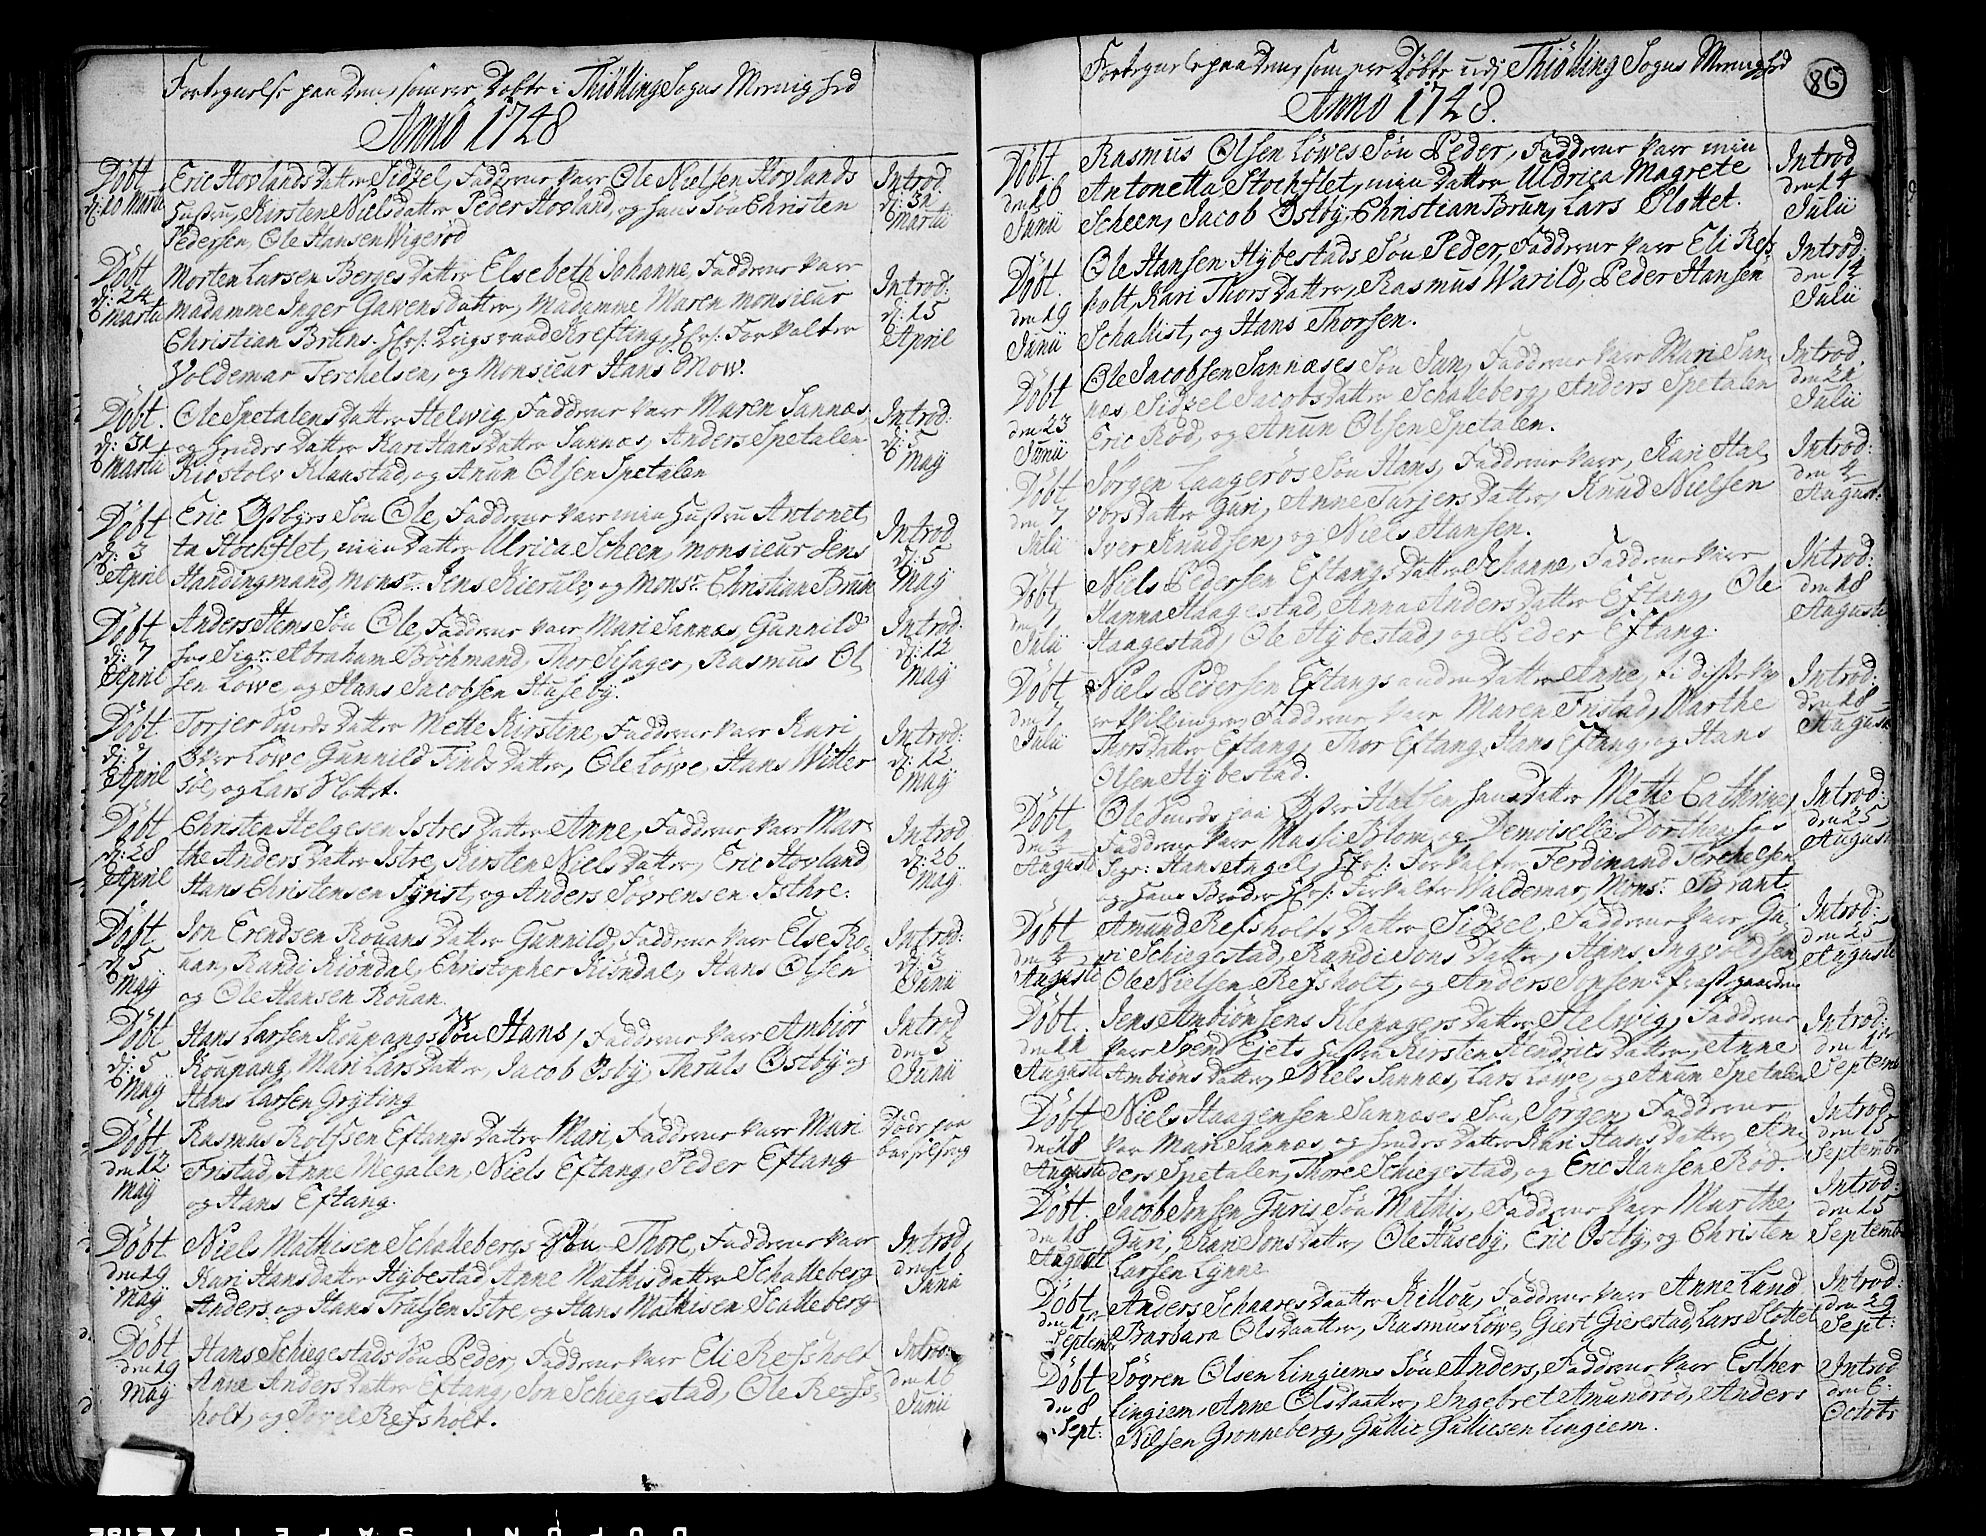 Fortegnelse paa dem, som ere Döbte i Thiölling Sogns Menighed
Anno 1748
Döbt d: 10 Martii
Eric Hovlands Datter Sidzel, Faddrene vare Ole Nielsen Hovlands
Hustru, Kirsten Nielsdatter, Peder Hovland, og hans Sön Christen
Pedersen, Ole Hansen Wigeröd
Introd. d: 31 Martii
Döbt d: 24 Martii
Morten Larsen Berges Datter Elsebeth Johanne, Faddrene vare
Madamme Inger Gawens Datter, Madamme Maren Monsieur
Christian Bruns. Hr: Krigsraad Krefting, Hr: Forvalter
Voldemar Terchelsen, og Monsieur Hans Mow.
Introd: d: 15 April
Döbt. d: 31 Martii
Ole Spetalens Datter Helwig, Faddrene vare Maren Sannæs,
og hendes Datter Kari Hans Datter Sannæs, Anders Spetalen
Kiostolv Klaastad, og Anun Olsen Spetalen
Introd: d: 5 Maÿ
Döbt d: 3 April
Eric Östbyes Sön Ole, Faddrene vare min Hustru Antonet
ta Stochflet, min Datter Ulrica Scheen, Monsieur Jens
Hardingmand, Monsr. Jens Kierulv, og Monsr. Christian Brun
Introd. d: 5 Maÿ
Döbt d: 7 April
Anders Hems Sön Ole, Faddrene vare Mari Sannæs, Gunnild
hos Sigr. Abraham Böchmand, Thor Sihager, Rasmus Ol
sen Löwe, og Hans Jacobsen Huseby.
Introd. d: 12 Maÿ
Döbt d: 7 April
Torjer Smeds Datter Mette Kirstine, Faddrene vare Kari
Iver Löwe, Gunnild Finds Datter, Ole Löwe, Hans Witter
söe, og Lars Slottet.
Introd: d: 12 Maÿ
Döbt d: 28 April
Christen Helgesen Istres Datter Anne, Faddrene vare Mar
the Anders Datter Istre, Kirsten Niels Datter, Eric Hovland
Hans Christensen Syrist, og Anders Sövrensen Isthre.
Introd d: 26 Maÿ
Döbt d: 5 Maÿ
Jon Erendsen Rouans Datter Gunnild, Faddrene vare Else Ro-
uan, Randi Kiöndal, Christopher Kiöndal, Hans Olsen
og Ole Hansen Rouan.
Introd: d: 3 Junii
Döbt d: 5 Maÿ
Hans Larsen Koupangs Sön Hans, Faddrene vare Ambiör
Koupang, Mari Lars Datter, Jacob Ösby, Thruls Östby og
Hans Larsen Grÿting
Introd den 3 Junii
Döbt den 12 Maÿ
Rasmus Rolfsen Eftangs Datter Mari, Faddrene vare Mari
Fristad, Anne Viegalen, Niels Eftang, Peder Eftang
og Hans Eftang.
Döde paa barselseng
Döbt den 19 Maÿ
Niels Mathisen Schallebergs Sön Thore, Faddrene vare
Kari Hansdatter Hybestad, Anne Mathisdatter Schalleberg
Anders og Hans Trulsen Istre, og Hans Mathisen Scalleberg
Introd. den 16 Junii
Döbt den 19 Maÿ
Hans Schiegestads Sön Peder, Faddrene vare Eli Refsholt
Anne Anders Datter Eftang, Jon Schiegestad, Ole Refs-
holt, og Povel Refsholt.
Introd: den 16 Junii
Fortegnelse paa dem, som ere Döbte udj Thiölling Sogns Menighed
86
Anno 1748.
Döbt. den 16 Junii
Rasmus Olsen Löwes Sön Peder, Faddrene vare min
Antonetta Stochflet, min Datter Uldrica Magrete
Scheen, Jacob Östby, Christian Brun, Lars Slottet.
Introd den 14 Julii
Döbt. den 19 Junii
Ole Hansen Hybestads Sön Peder, Faddrene vare Eli Refs-
holt, Kari Thors Datter, Rasmus Warild, Peder Hansen
Schallist, og Hans Thorsen.
Introd: den 14 Julii
Döbt den 23 Junii
Ole Jacobsen Sannæses Sön Jan, Faddrene vare Mari San-
næs, Sidzel Jacobs Datter Schalleberg, Anders Spetalen
Eric Röd, og Anun Olsen Spetalen.
Introd. den 21 Julii
Döbt den 7 Julii
Jörgen Laageröes Sön Hans, Faddrene vare, Kari Hal-
vors Datter Guri, Anne Tarjers Datter, Knud Nielsen
Iver Knudsen, og Niels Hansen.
Introd: den 4 August:
Döbt den 7 Julii
Niels Pedersen Eftangs Datter Johanne, Faddrene vare
Hanna Haagestad, Anna Anders Datter Eftang, Ole
Haagestad, Ole Hybestad, og Peder Eftang.
Introd: den 18 Augusti
Döbt den 7 Julii
Niels Pedersen Eftangs anden Datter Anne, ti disse va-
re Tvillinger, Faddrene vare Maren Fristad, Marthe
Thors Datter Eftang, Thor Eftang, Hans Eftang, og Hans
Olsen Hybestad.
Introd: den 18 August
Döbt den 3 Augusti
Ole Smeds paa Östre Halsen hans Datter Mette Cathrine,
Faddrene vare Massi Blom, og Demoiselle Dorthea hos
Sigr: Hans Angel, Hr: Forvalter Ferdinand Terchelsen
og hans Broder Hr: Forvalter Waldemar, Monsr. Brant
Introd: den 25 August
Döbt den 4 Augusti
Amund Refsholts Datter Sidzel, Faddrene vare Gu-
ri Schiegestad, Randi Jons Datter, Hans Ingvoldsen
Ole Nielsen Refsholt, og Anders Jonsen Præstegaarden
Introd: den 25 Augusti
Döbt. den 11 Augusti
Jens Ambiönsens Klepagers Datter Helwig, Faddrene
vare Svend Ejets Hustru Kirsten Hendrics Datter, Anne
Ambiöns Datter, Niels Sannæs, Lars Löwe, og Anun Spetalen
Introd: den 1 Septemb:
Döbt den 18 Augusti
Niels Haagensen Sannæses Sön Jörgen, Faddrene
vare Mari Sannæs, og hendes Datter Kari Hans Datter, An-
ders Spetalen, Thore Schiegestad, og Eric Hansen Röd.
Introd. den 15 Septemb:
Döbt. den 18 Augusti
Jacob Jonsen Guris Sön Mathis, Faddrene vare Marthe
Guri, Kari Jons Datter, Ole Huseby, Eric Östby, og Christen
Larsen Lynne
Introd: den 15 Septemb:
Döbt den 1 Septemb:
Anders Schaares Datter Killou, Faddrene vare Anne Lund
Barbara Ols Datter, Rasmus Löwe, Giert Gierestad, Lars Slottet
Introd: den 29 Sept:
Döbt den 8 Sept:
Sövren Olsen Lingiems Sön Anders, Faddrene vare Esther
Lingiem, Anne Ols Datter, Ingebret Amundröd, Anders
Nilsen Grönneberg, Gullic Gullicsen Lingiem.
Introd den 6 Octobr